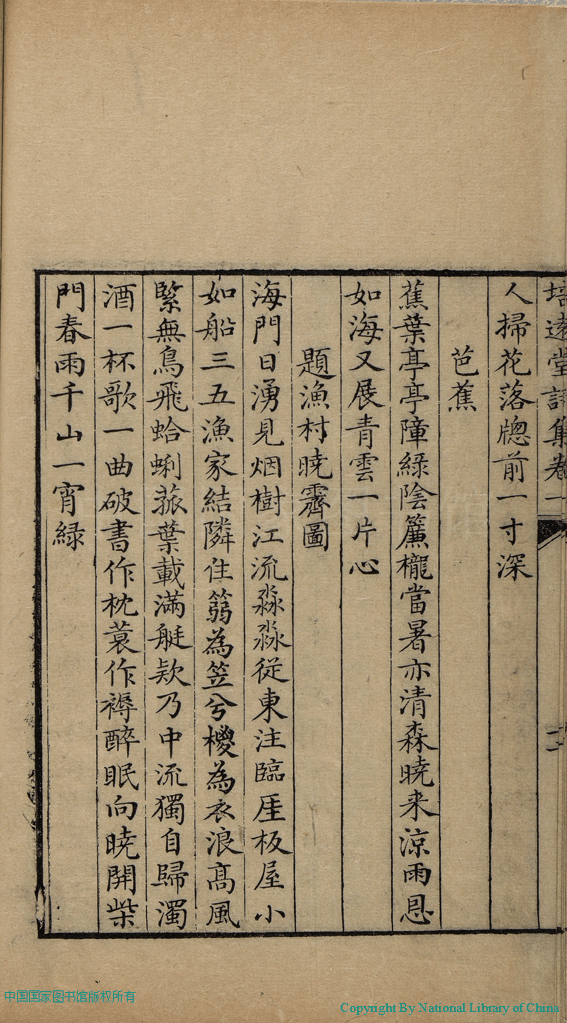 培遠堂詩集卷一
人掃花落牕前一寸深
芭蕉
蕉葉亭亭障綠陰簾櫳當暑亦清森曉来涼雨恩
如海又展青雲一片心
題漁村曉霽圖
海門日湧見烟樹江流淼淼從東注臨厓板屋小
如船三五漁家結隣住篛為笠兮椶為衣浪高風
緊無鳥飛蛤蜊菰葉載滿艇欵乃中流獨自歸濁
酒一杯歌一曲破書作枕蓑作褥醉眠向曉開柴
門春雨千山一宵綠
中国国家图书馆版权所有
Copyright By National Library of China